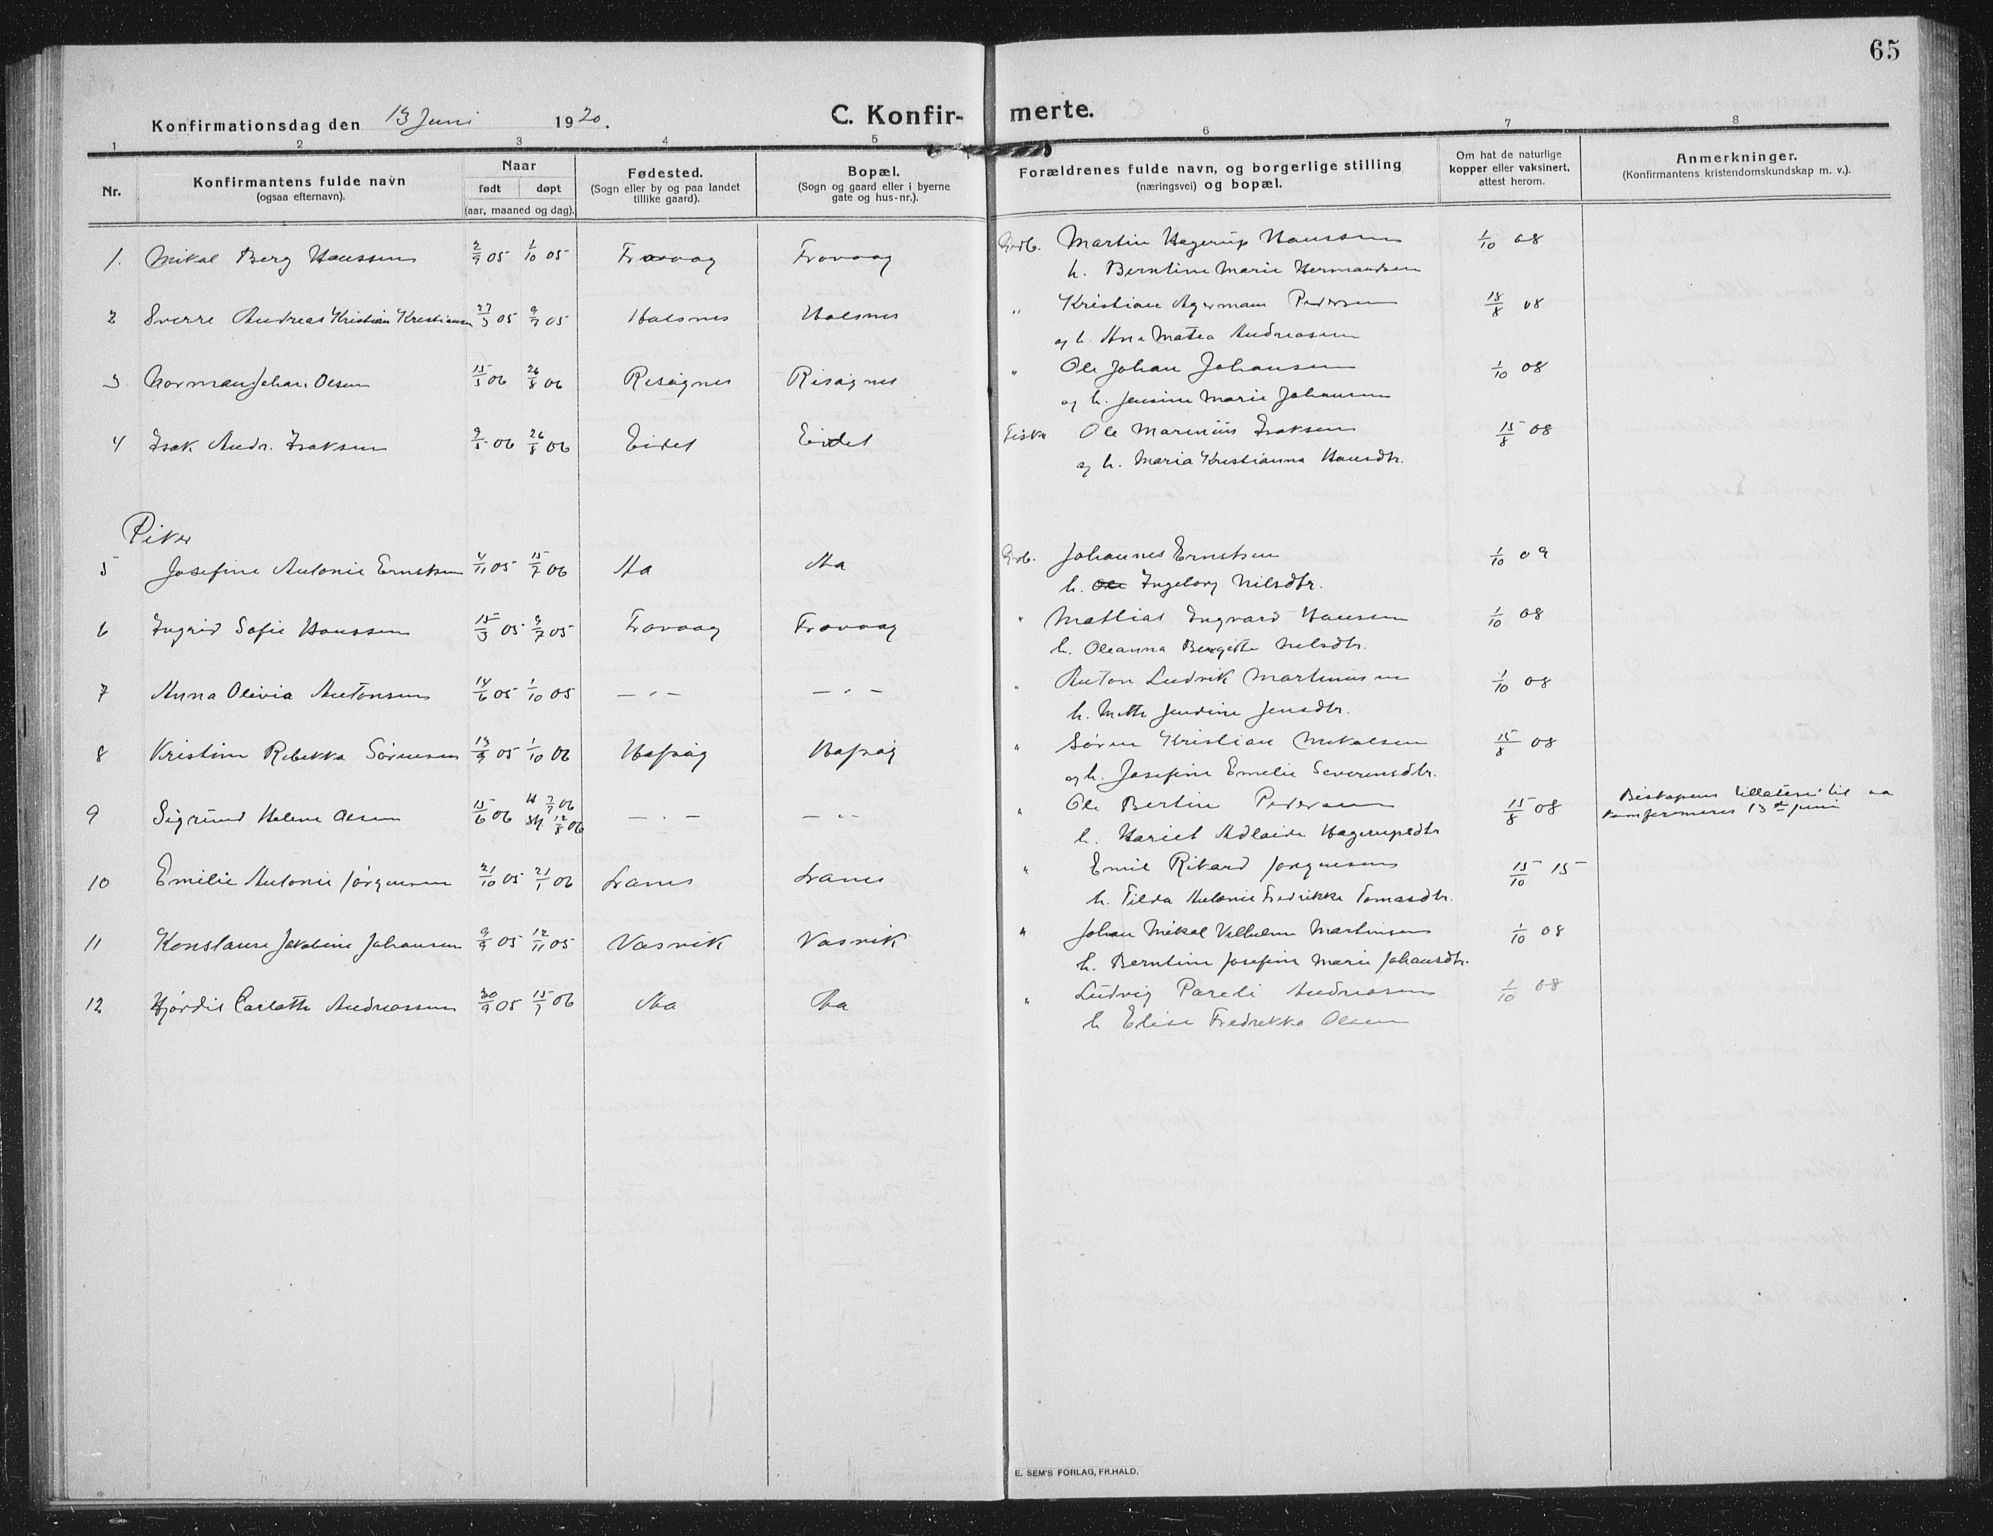 65
Konfirmationsdag den 13 Juni 1920.
C. Konfir- merte.
1 2 3 4 5 6 7 8
Nr.
Konfirmantens fulde navn
(ogsaa efternavn).
Naar
født døpt
(aar, maaned og dag).
Fødested.
(Sogn eller by og paa landet
tillike gaard).
Bopæl.
(Sogn og gaard eller i byerne
gate og hus-nr.).
Forældrenes fulde navn, og borgerlige stilling
(næringsvei) og bopæl.
Om hat de naturlige
kopper eller vaksinert,
attest herom.
Anmerkninger.
(Konfirmantens kristendomskundskap m. v.).
1. Mikal Berg Hanssen 2/9 05 1/10 05 Fravaag Fravaag Grdb. Martin Hagerup Hanssen 1/10 08
h. Berntine Marie Hermandsen
2 Sverre Andreas Kristian Kristiansen 27/3 05 9/7 05 Halsnes Halsnes " Kristian Agerman Pedersen 18/8 08
og h. Ane Matea Andreasen
3 Norman Johan Olsen 15/5 06 26/8 06 Risøgnes Risøgnes " Ole Johan Johansen 1/10 08
og h. Jensine Marie Johansen
4 Isak Andr. Isaksen 9/5 06 26/8 06 Eidet Eidet Fisk. Ole Marenius Isaksen 15/8 08
og h. Maria Kristianna Hansdtr.
Piker
5 Josefine Antonie Ernstsen 4/11 05 15/7 06 Aa Aa Grdb. Johannes Ernstsen 1/10 09
h. Ingeborg Nilsdtr.
6 Ingrid Sofie Hanssen 15/3 05 9/7 05 Fravaag Fravaag " Mathias Ingvard Hansen 1/10 08
h. Oleanna Bergitte Nilsdtr.
7 Anna Olivia Antonsen 14/6 05 1/10 05 —"— —"— " Anton Ludvik Martinusen 1/10 08
h. Mette Jendine Jensdtr.
8 Kristine Rebekka Sørensen 13/9 05 1/10 06 Hofsøy Hofsøy " Søren Kristian Mikalsen 15/8 08
og h. Josefine Emelie Severensdtr.
9 Sigrund Helene Olsen 15/6 06 H 7/7 06 —"— —"— " Ole Bertin Pedersen 15/8 08 Biskopens tillatelse til aa
St 12/8 06 h. Hariet Adlaide Hagerupsdtr konfirmeres 13de juni
10 Emilie Antonie Jørgensen 21/10 05 21/1 06 Lanes Lanes " Emil Rikard Jørgensen 15/10 15
h. Tilda Antonie Fredrikke Tomasdtr.
11 Konstanse Jakobine Johansen 9/9 05 12/11 05 Vasvik Vasvik " Johan Mikal Vilhelm Martinsen 1/10 08
h. Berntine Josefine Marie Johansdtr.
12 Hjørdis Carlotte Andreassen 30/9 05 15/7 06 Aa Aa " Ludvig Pareli Andreasen 1/10 08
h Elise Fredrikka Olsen
E. SEM'S FORLAG, FR.HALD.